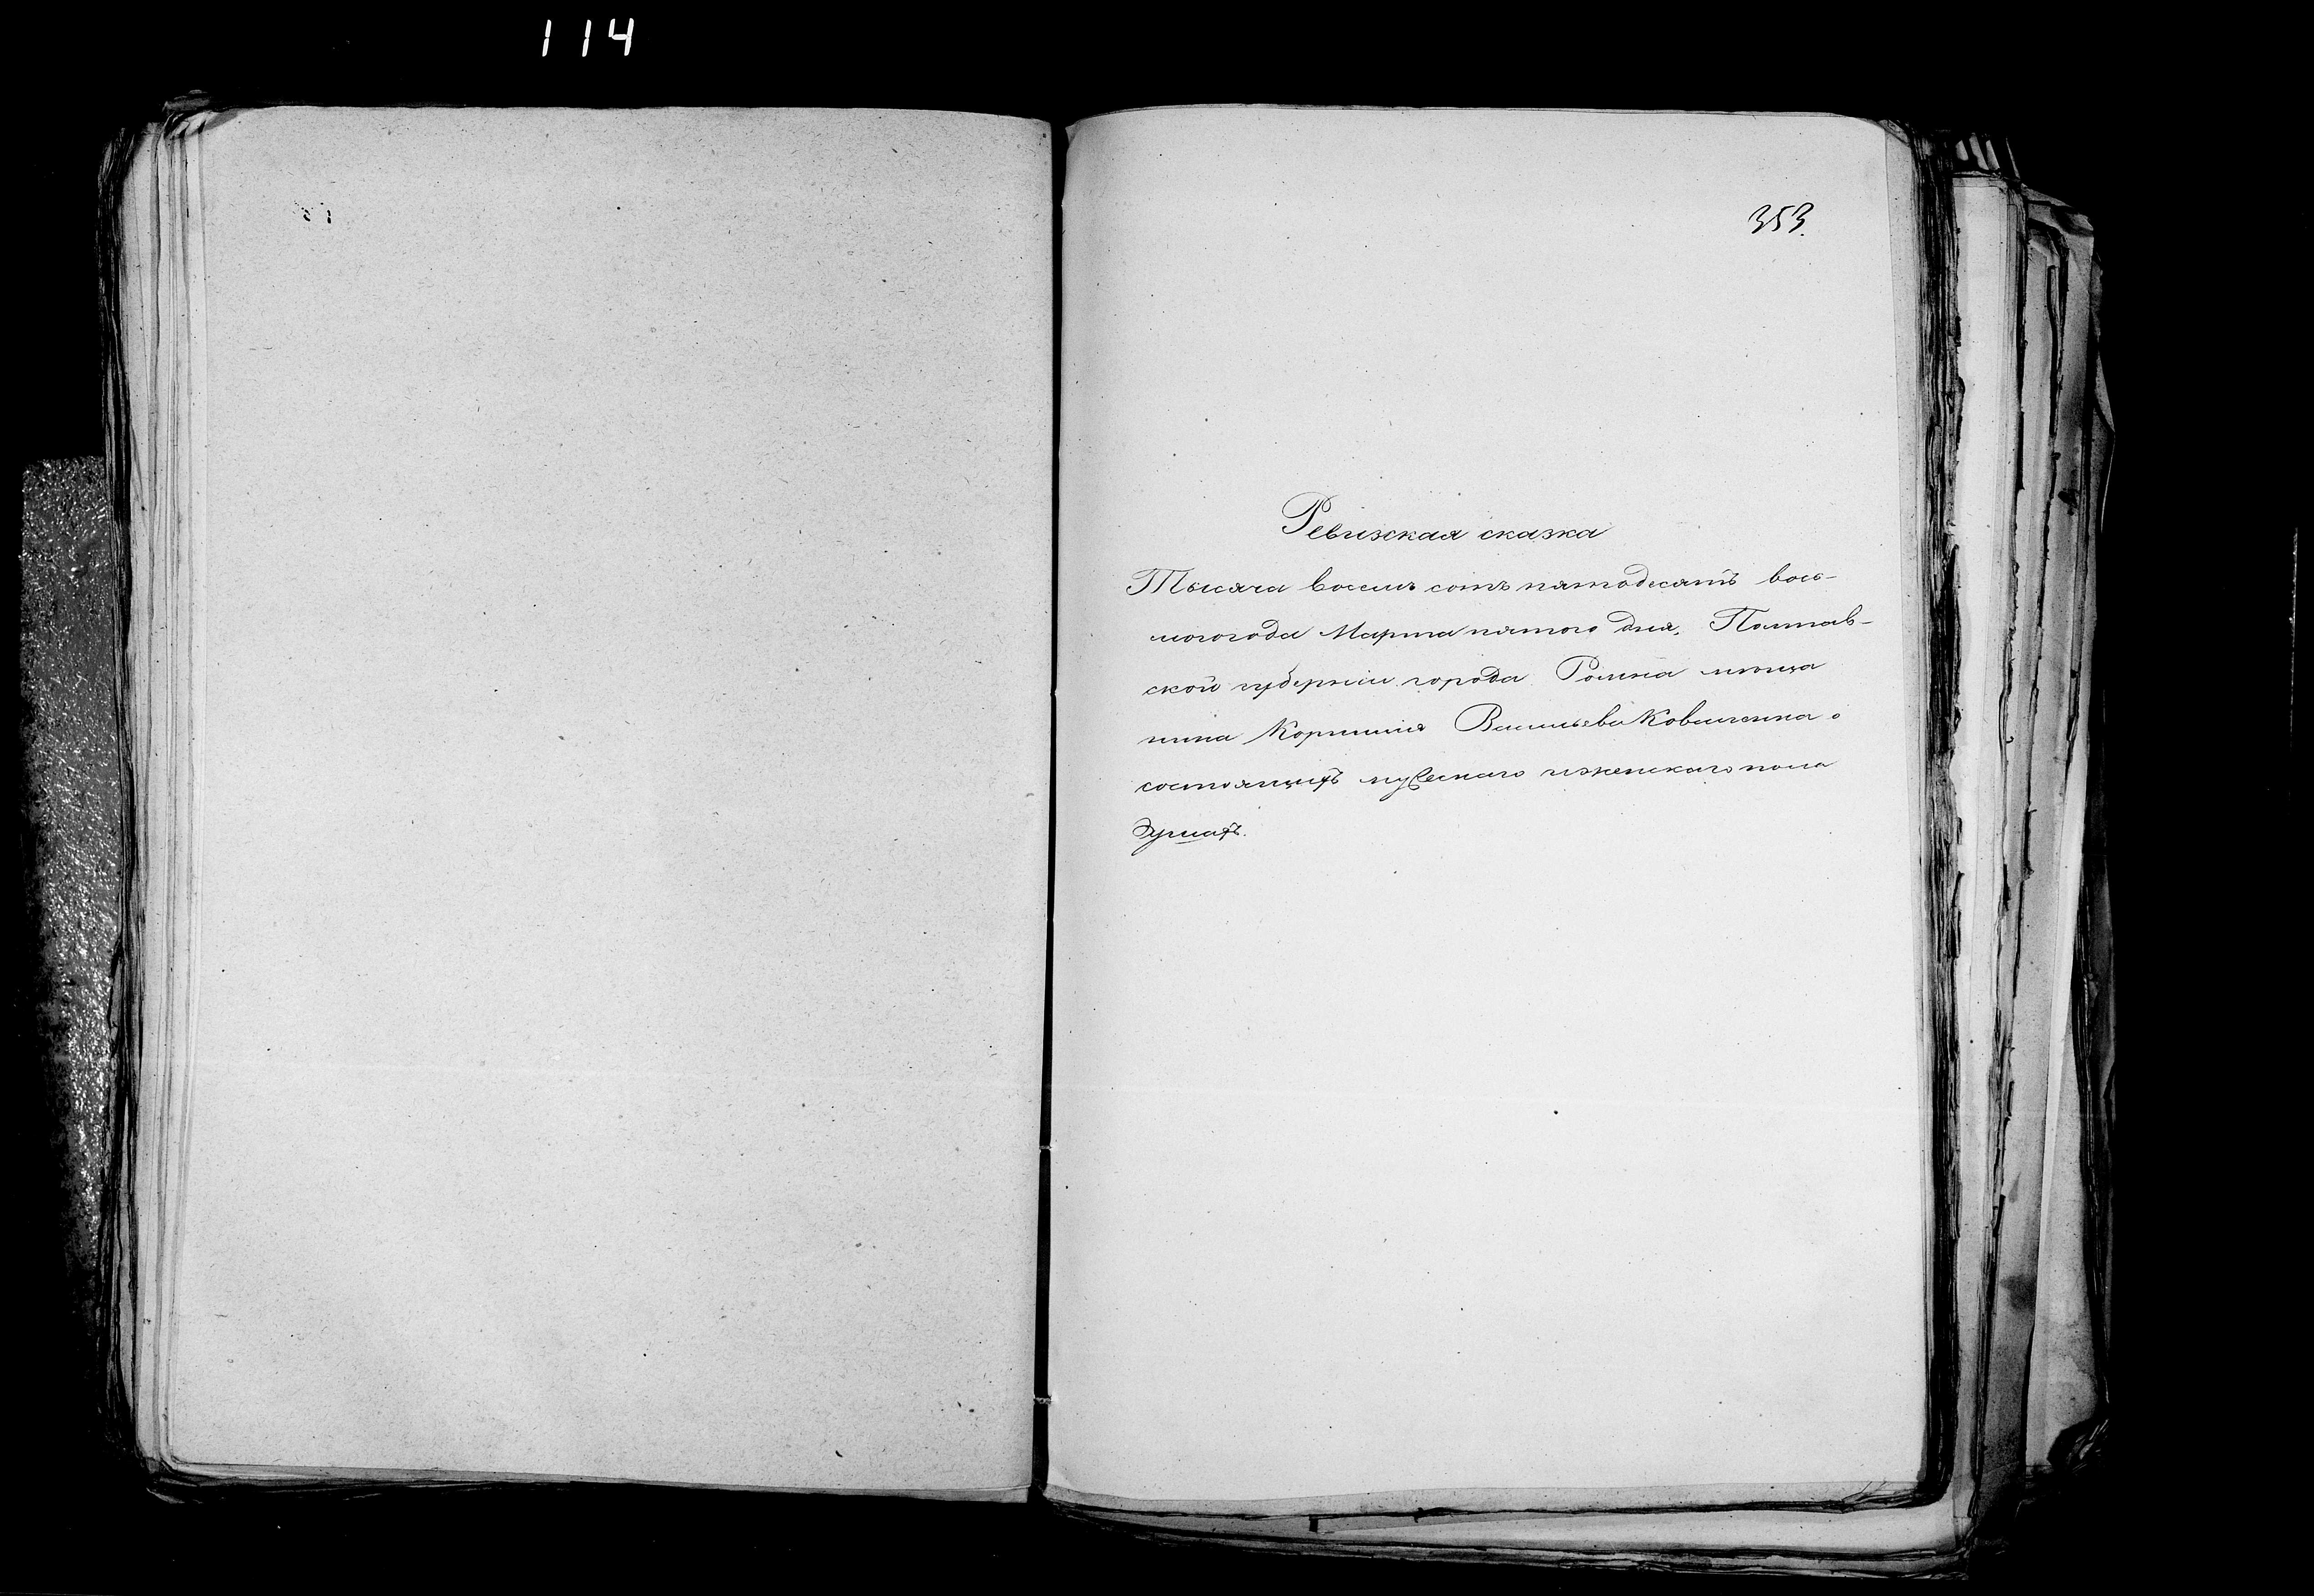 114
353.
Ревизская сказка
Тысяча восемь сотъ пятодесятъ вось-
могогода Марта пятого дня, Полтав-
ской губерніи города Ромна мѣща
нина Корнилія Васильева Коваленка о
состоящихъ мужескаго иженскаго пола
душахъ.